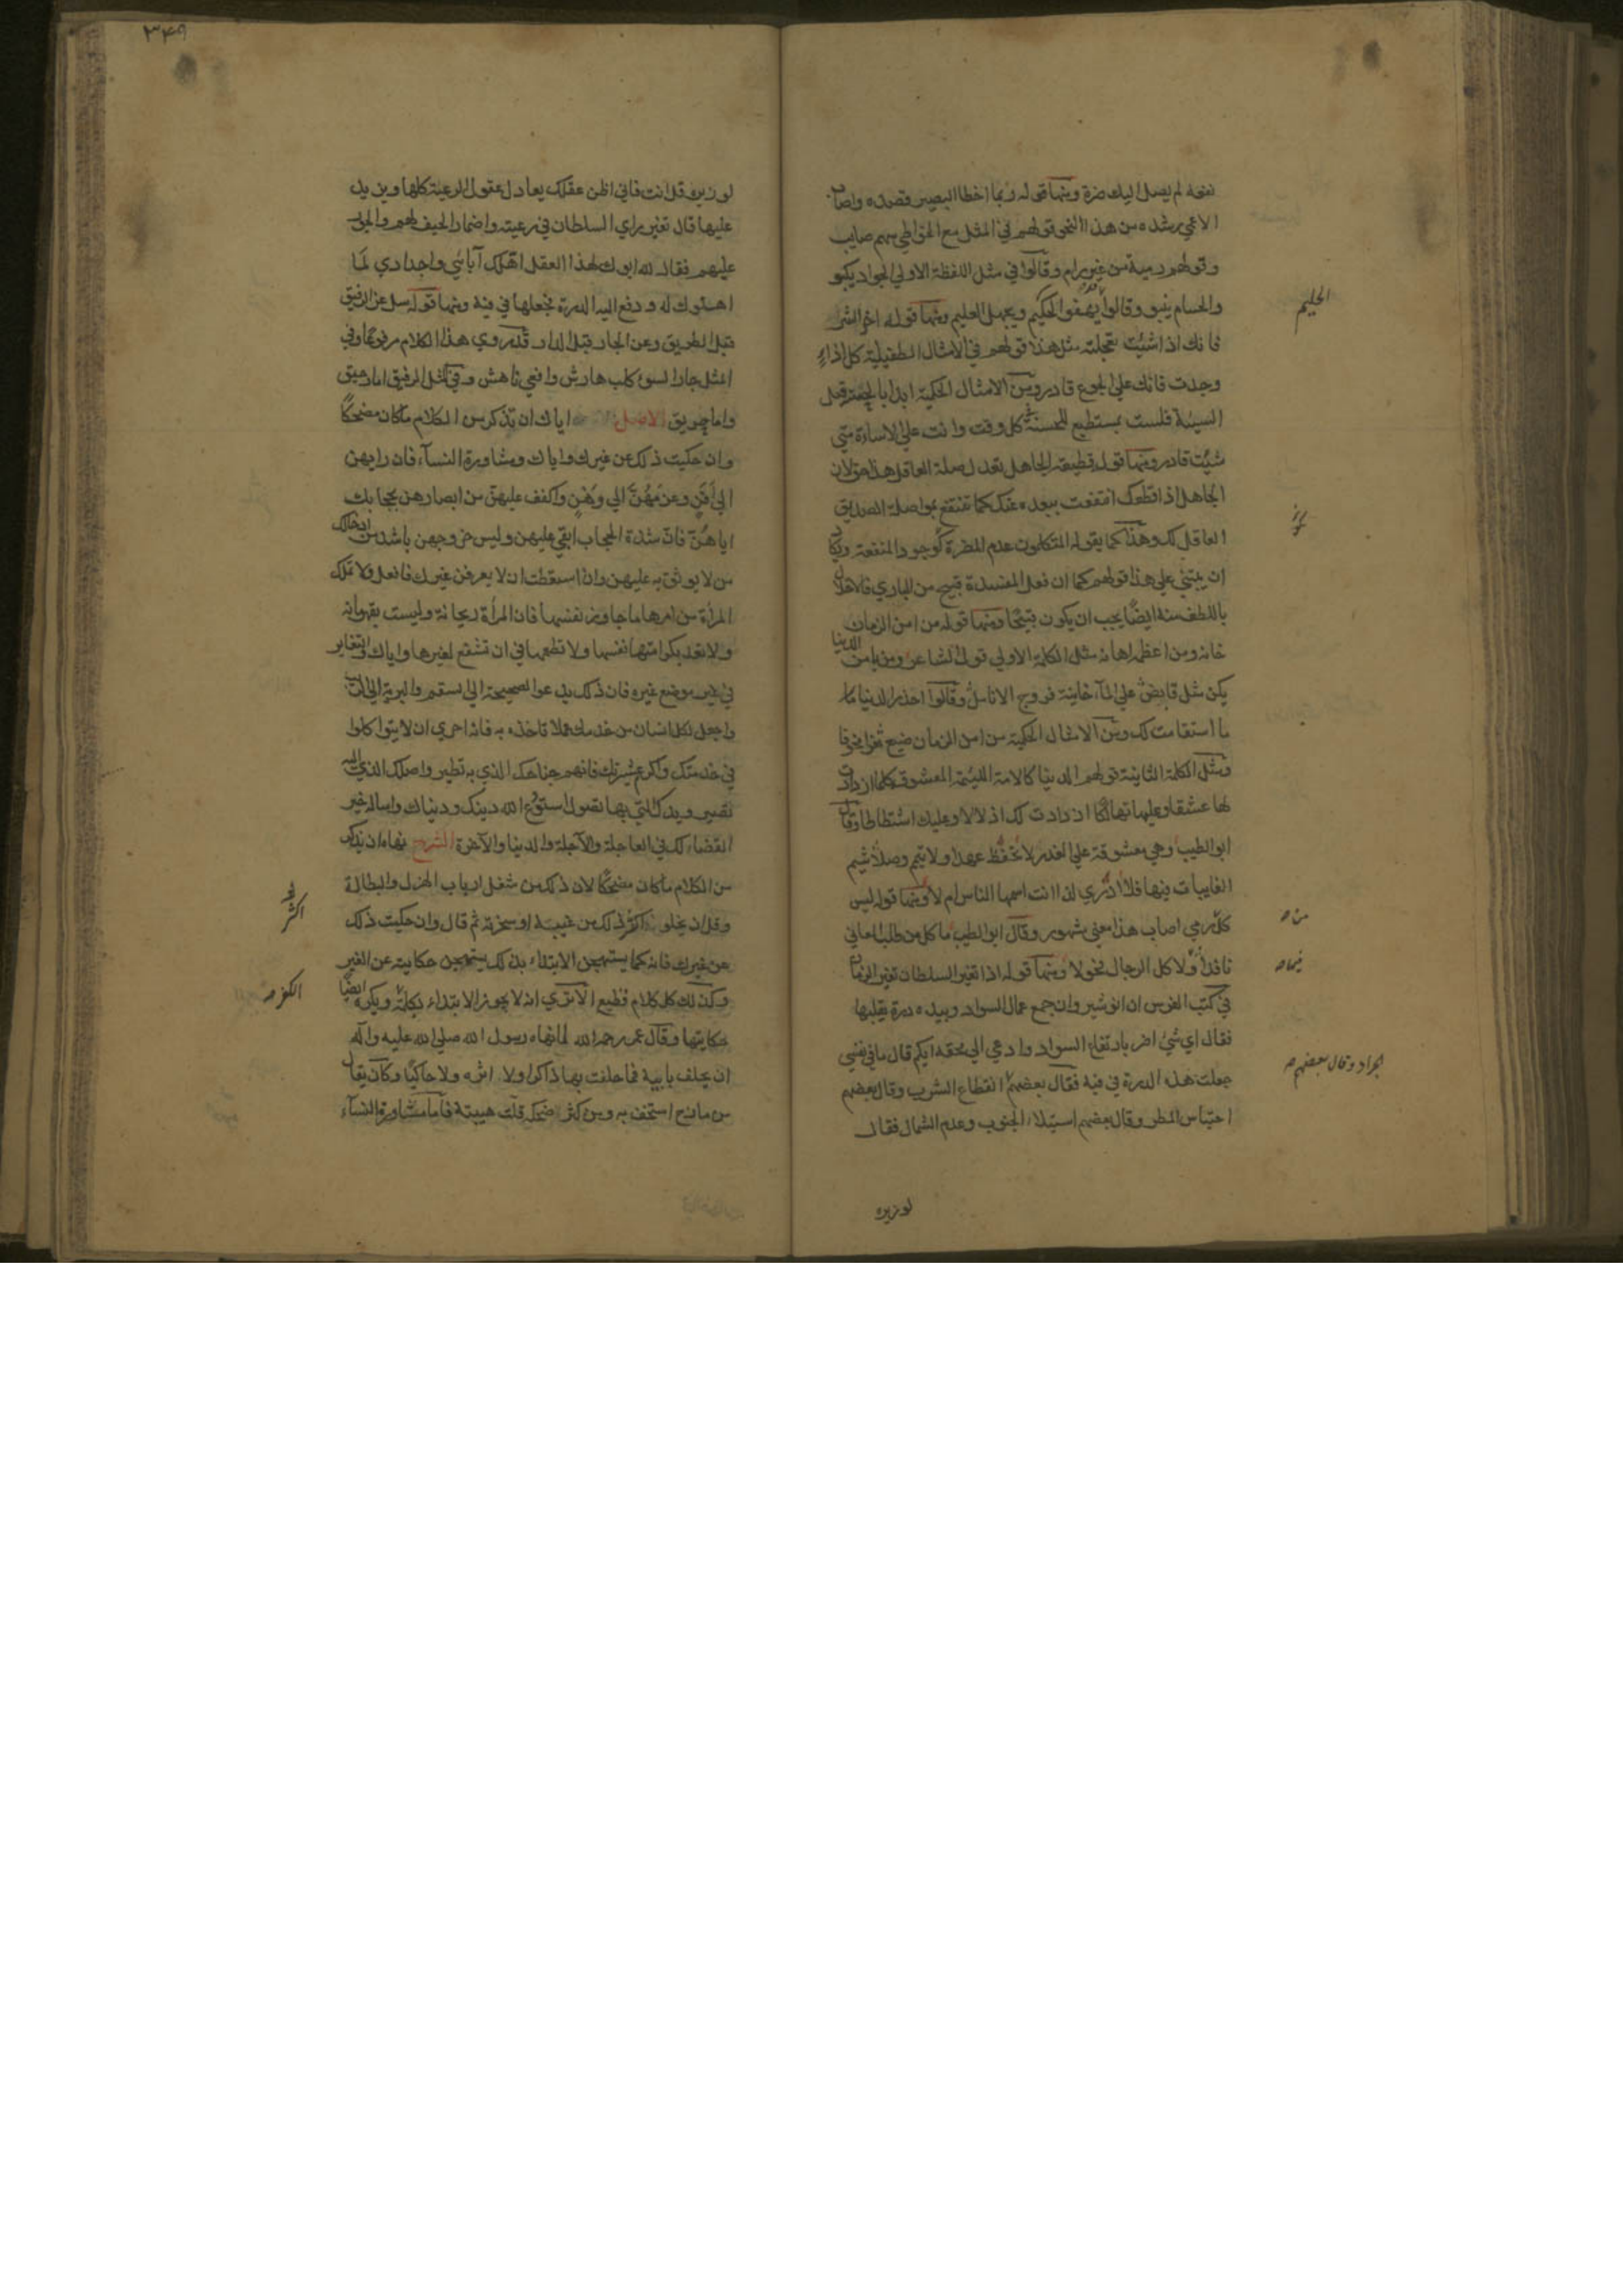 نفعه لم يصل اليك ضرة ومنها قوله ربما اخطا البصير قصده واصاب
الاعمي رشده من هذا النحو قولهم في المثل مع الخواطي سهم صايب
وقولهم رمية من غير رام وقالوا في مثل اللفظة الاولي الجواد يكبو
والحسام ينبو وقالوا يهفوا الحكيم ويجهل العليم ومنها قوله اخر الشر
الحليم
فانك اذا شئت تعجلته مثل هذا قولهم في الامثال الطفيلية كل اذا
وجدت فانك علي الجوع قادر ومن الامثال الحكمية ابدا بالحسنة قبل
السيئة فلست بمستطيع للحسنة كل وقت وانت علي الاساءة متي
شئت قادر ومنها قوله قطيعة الجاهل تعدل صلة العاقل هذا حق لان
الجاهل اذا قطعك انتفعت ببعده عنك كما تنتفع بمواصلة الصديق
العاقل لك وهذا كما يقوله المتكلمون عدم المضرة كوجود المنفعة ويكاد
ان يبتني علي هذا قولهم كما ان فعل المفسدة قبيح من الباري فالاخلال
باللطف منه ايضا يجب ان يكون قبيحا ومنها قوله من امن الزمان
خانه ومن اعظمه اهانه مثل الكلمة الاولي قول الشاعر ومن يامن الدنيا
يكن مثل قابض علي الماء خانته فروج الاناسل وقالوا احذر الدنيا ما
ما استقامت لك ومن الامثال الحكمية من امن الزمان ضيع ثغرا مخوفا
ومثل الكلمة الثانية قولهم الدنيا كالامة اللئيمة المعشوقة كلما ازدادت
لها عشقا وعليها تهالكا ازدادت لك اذلالا وعليك اشتطاطا وقال
ابو الطيب وهي معشوقة علي الغدر لا تحفظ عهدا ولا تتم وصلا شيم
الغانيات فيها فلا ادري لذا انت اسمها الناس ام لا ومنها قوله ليس
كل من رمي اصاب هذا معني مشهور وقال ابو الطيب ما كل من طلب المعاني
من
نافذا ولا كل الرجال فحولا ومنها قوله اذا تغير السلطان تغير الزمان
فيها
في كتب الفرس ان انوشيروان جمع عمال السواد وبيده درة يقلبها
فقال اي شئ اضر بارتفاع السواد وادعي الي محقه ايكم قال ما في نفسي
جعلت هذه الدرة في فيه فقال بعضهم انقطاع الشرب وقال بعضهم
الجراد وقال بعضهم
احتباس المطر وقال بعضهم استيلاء الجنوب وعدم الشمال فقال
لوزيره
٣٤٩
لوزيره قل انت فاني اظن عقلك يعادل عقول الرعية كلها ويزيد
عليها قال تغير راي السلطان في رعيته واضمار الحيف لهم والجور
عليهم فقال لله ابوك لهذا العقل اهلك آبائي واجدادي لما
اهلوك له ودفع اليه الدرة فجعلها في فيه ومنها قوله سل عن الرفيق
قبل الطريق وعن الجار قبل الدار قد روي هذا الكلام مرفوعا وفي
المثل جار السوء كلب هارش وافعي ناهش وفي المثل الرفيق اما رحيق
واما حريق الاصل اياك ان تذكر من الكلام ما كان مضحكا
وان حكيت ذلك عن غيرك واياك ومشاورة النساء فان رايهن
الي افن وعزمهن الي وهن واكفف عليهن من ابصارهن بحجابك
اياهن فان شدة الحجاب ابقي عليهن وليس خروجهن باشد من ادخالك
من لا يوثق به عليهن وان استطعت ان لا يعرفن غيرك فافعل ولا تملك
المرأة من امرها ما جاوز نفسها فان المرأة ريحانة وليست بقهرمانة
ولا تعد بكرامتها نفسها ولا تطمعها في ان تشفع لغيرها واياك والتغاير
في غير موضع غيره فان ذلك يدعو الصحيحة الي السقم والبرية الي الريب
واجعل لكل انسان من خدمك عملا تاخذه به فانه احري ان لا يتواكلوا
في خدمتك واكرم عشيرتك فانهم جناحك الذي به تطير واصلك الذي اليه
تصير ويدك التي بها تصول استودع الله دينك ودنياك واساله خير
القضاء لك في العاجلة والآجلة والدنيا والآخرة الشرح نهاه ان يذكر
من الكلام ما كان مضحكا لان ذلك من شغل ارباب الهزل والبطالة
وقل ان يخلو ذلك من غيبة او سخرية ثم قال وان حكيت ذلك
اكثر
عن غيرك فانه كما يستهجن الابتداء بذلك يستهجن حكايته عن الغير
وكذلك كل كلام فظيع الا تري انه لا يجوز الابتداء بكلمة ويكره ايضا
الكفر
حكايتها وقال عمر رحمه الله لما نهاه رسول الله صلي الله عليه وآله
ان يحلف بابيه فما حلفت بها ذاكرا ولا اثره ولا حاكيا وكان يقال
من مازح استخف به ومن كثر ضحكه قلت هيبته فاما مشاورة النساء